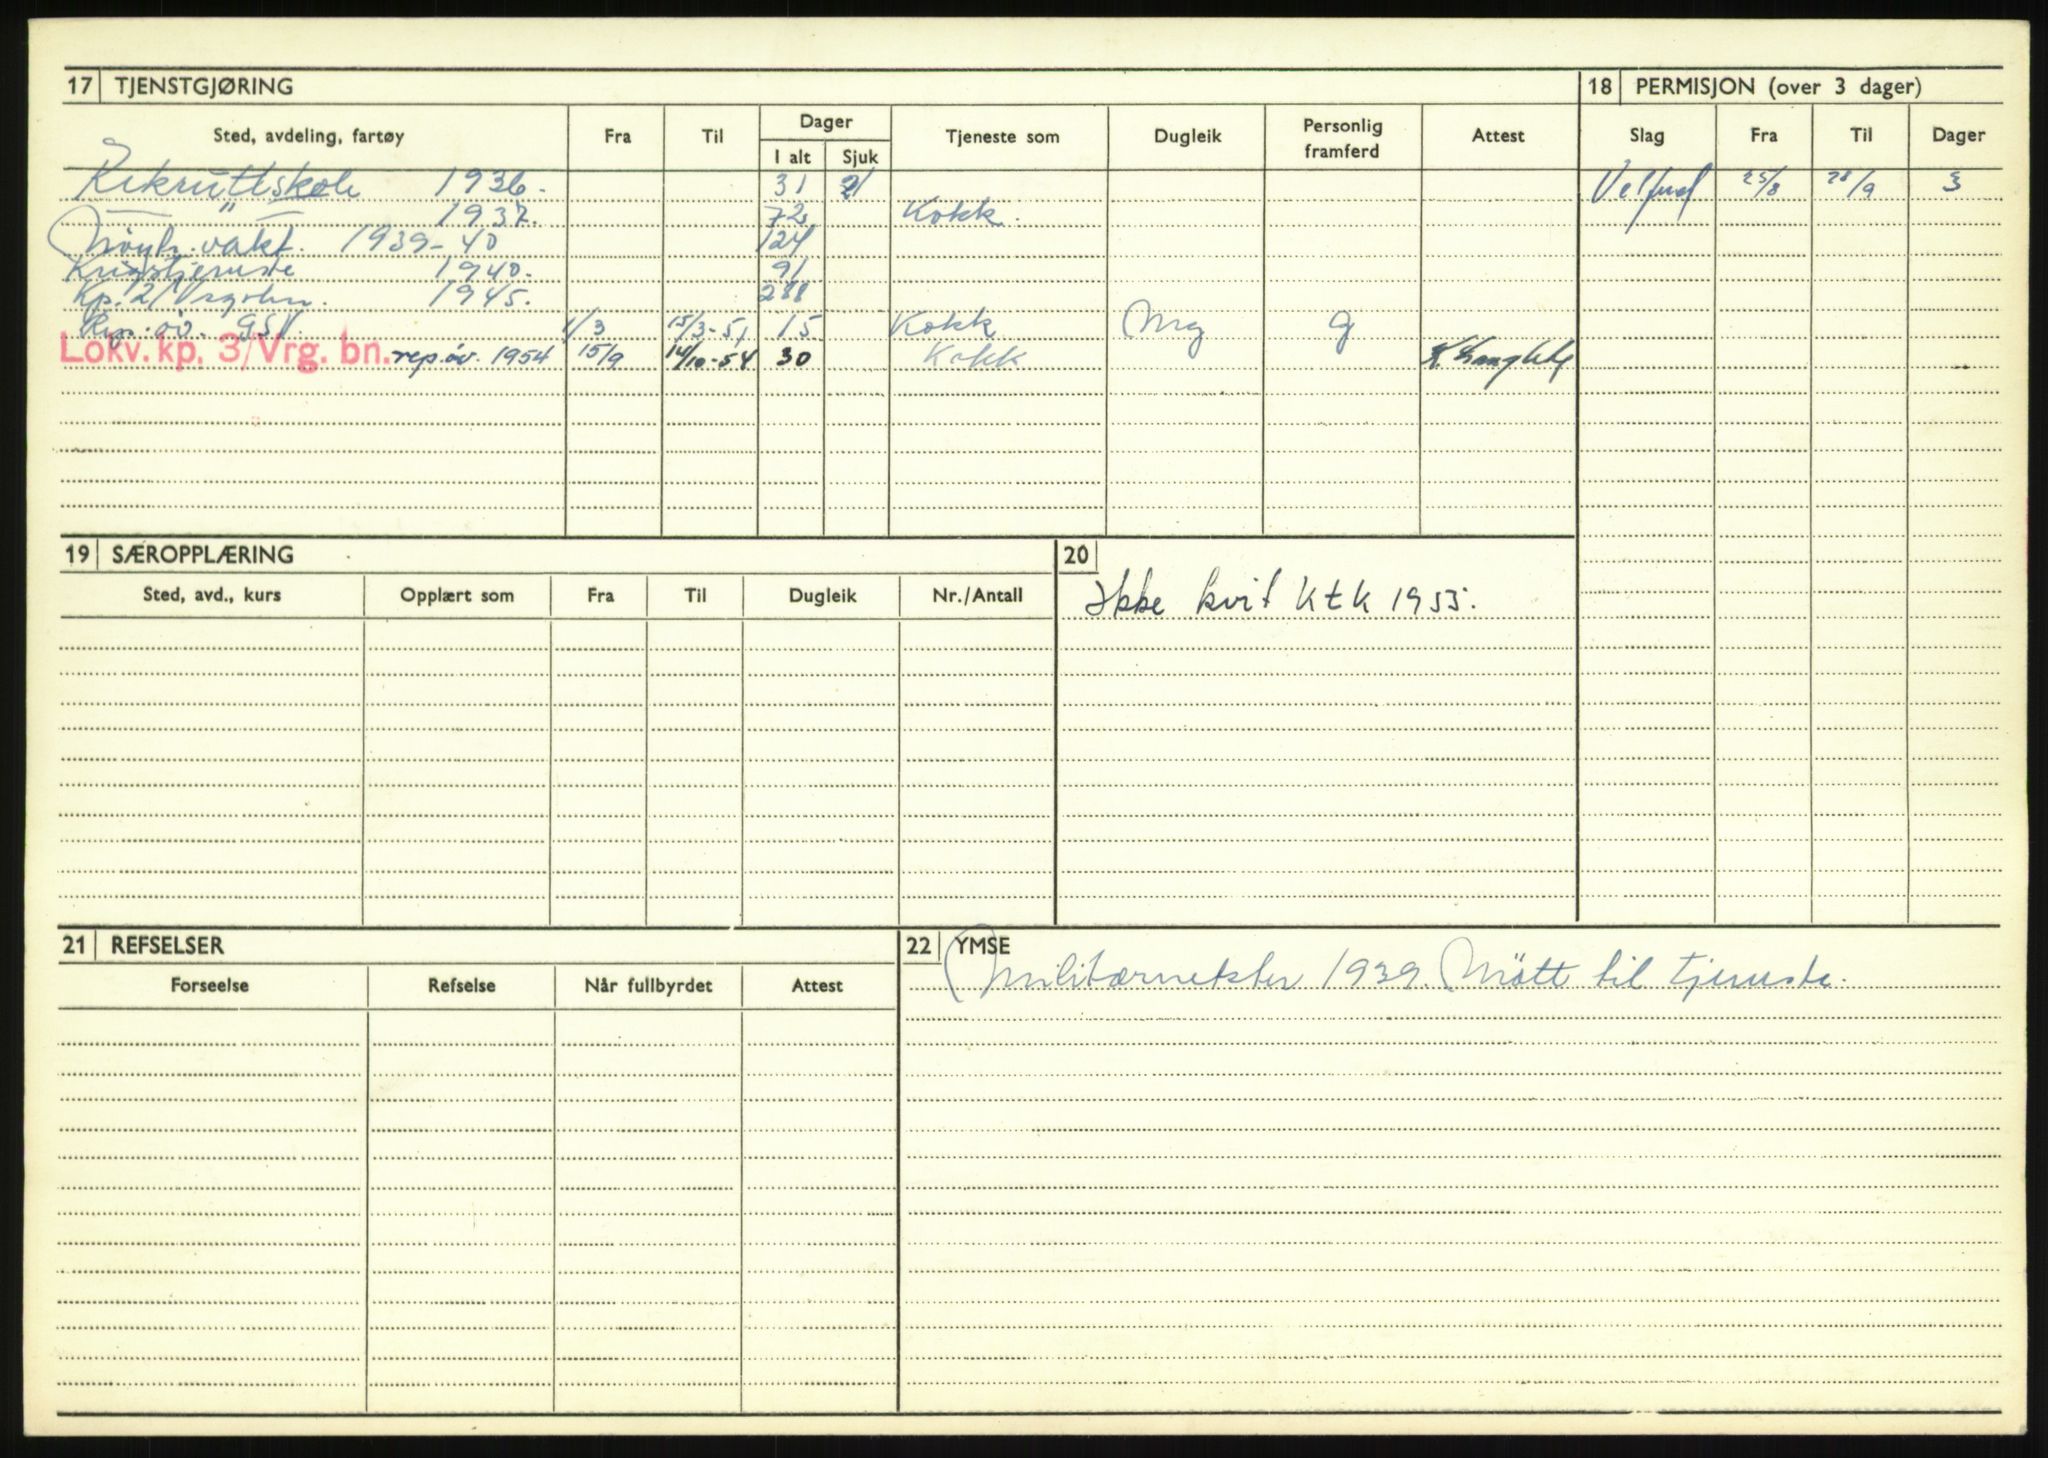 17 TJENSTGJØRING
18 PERMISJON (over 3 dager)
Sted, avdeling, fartøy Fra Til Dager Tjeneste som Dugleik Personlig framferd Attest Slag Fra Til Dager
I alt Sjuk
Rekruttskole 1936. 31 21 Velferd 25/8 28/9 3
— " — 1937. 72 Kokk.
Nøytr. vakt. 1939-40 124
Krigstjeneste 1940. 91
Kp. 2/ 1945. 288
Rep. øv. GSV. 1/3 15/3-51 15 Kokk Mg G
Lokv. kp. 3/Vrg. bn. rep.øv. 1954 15/9 14/10-54 30 Kokk
19 SÆROPPLÆRING
20
Sted, avd., kurs Opplært som Fra Til Dugleik Nr./Antall
Ikke kvit KtK 1955.
21 REFSELSER
22 YMSE
Forseelse Refselse Når fullbyrdet Attest
Militærnekter 1939. Møtt til tjeneste.